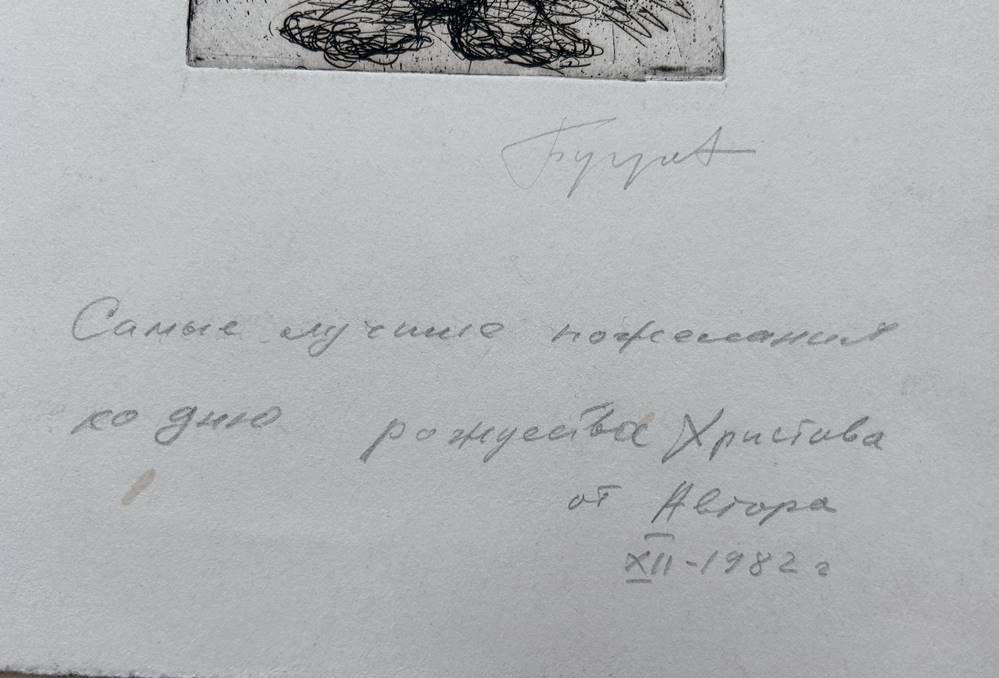 Самые лучшие пожелания
ко дню рождества Христова
от Автора
XII-1982 г